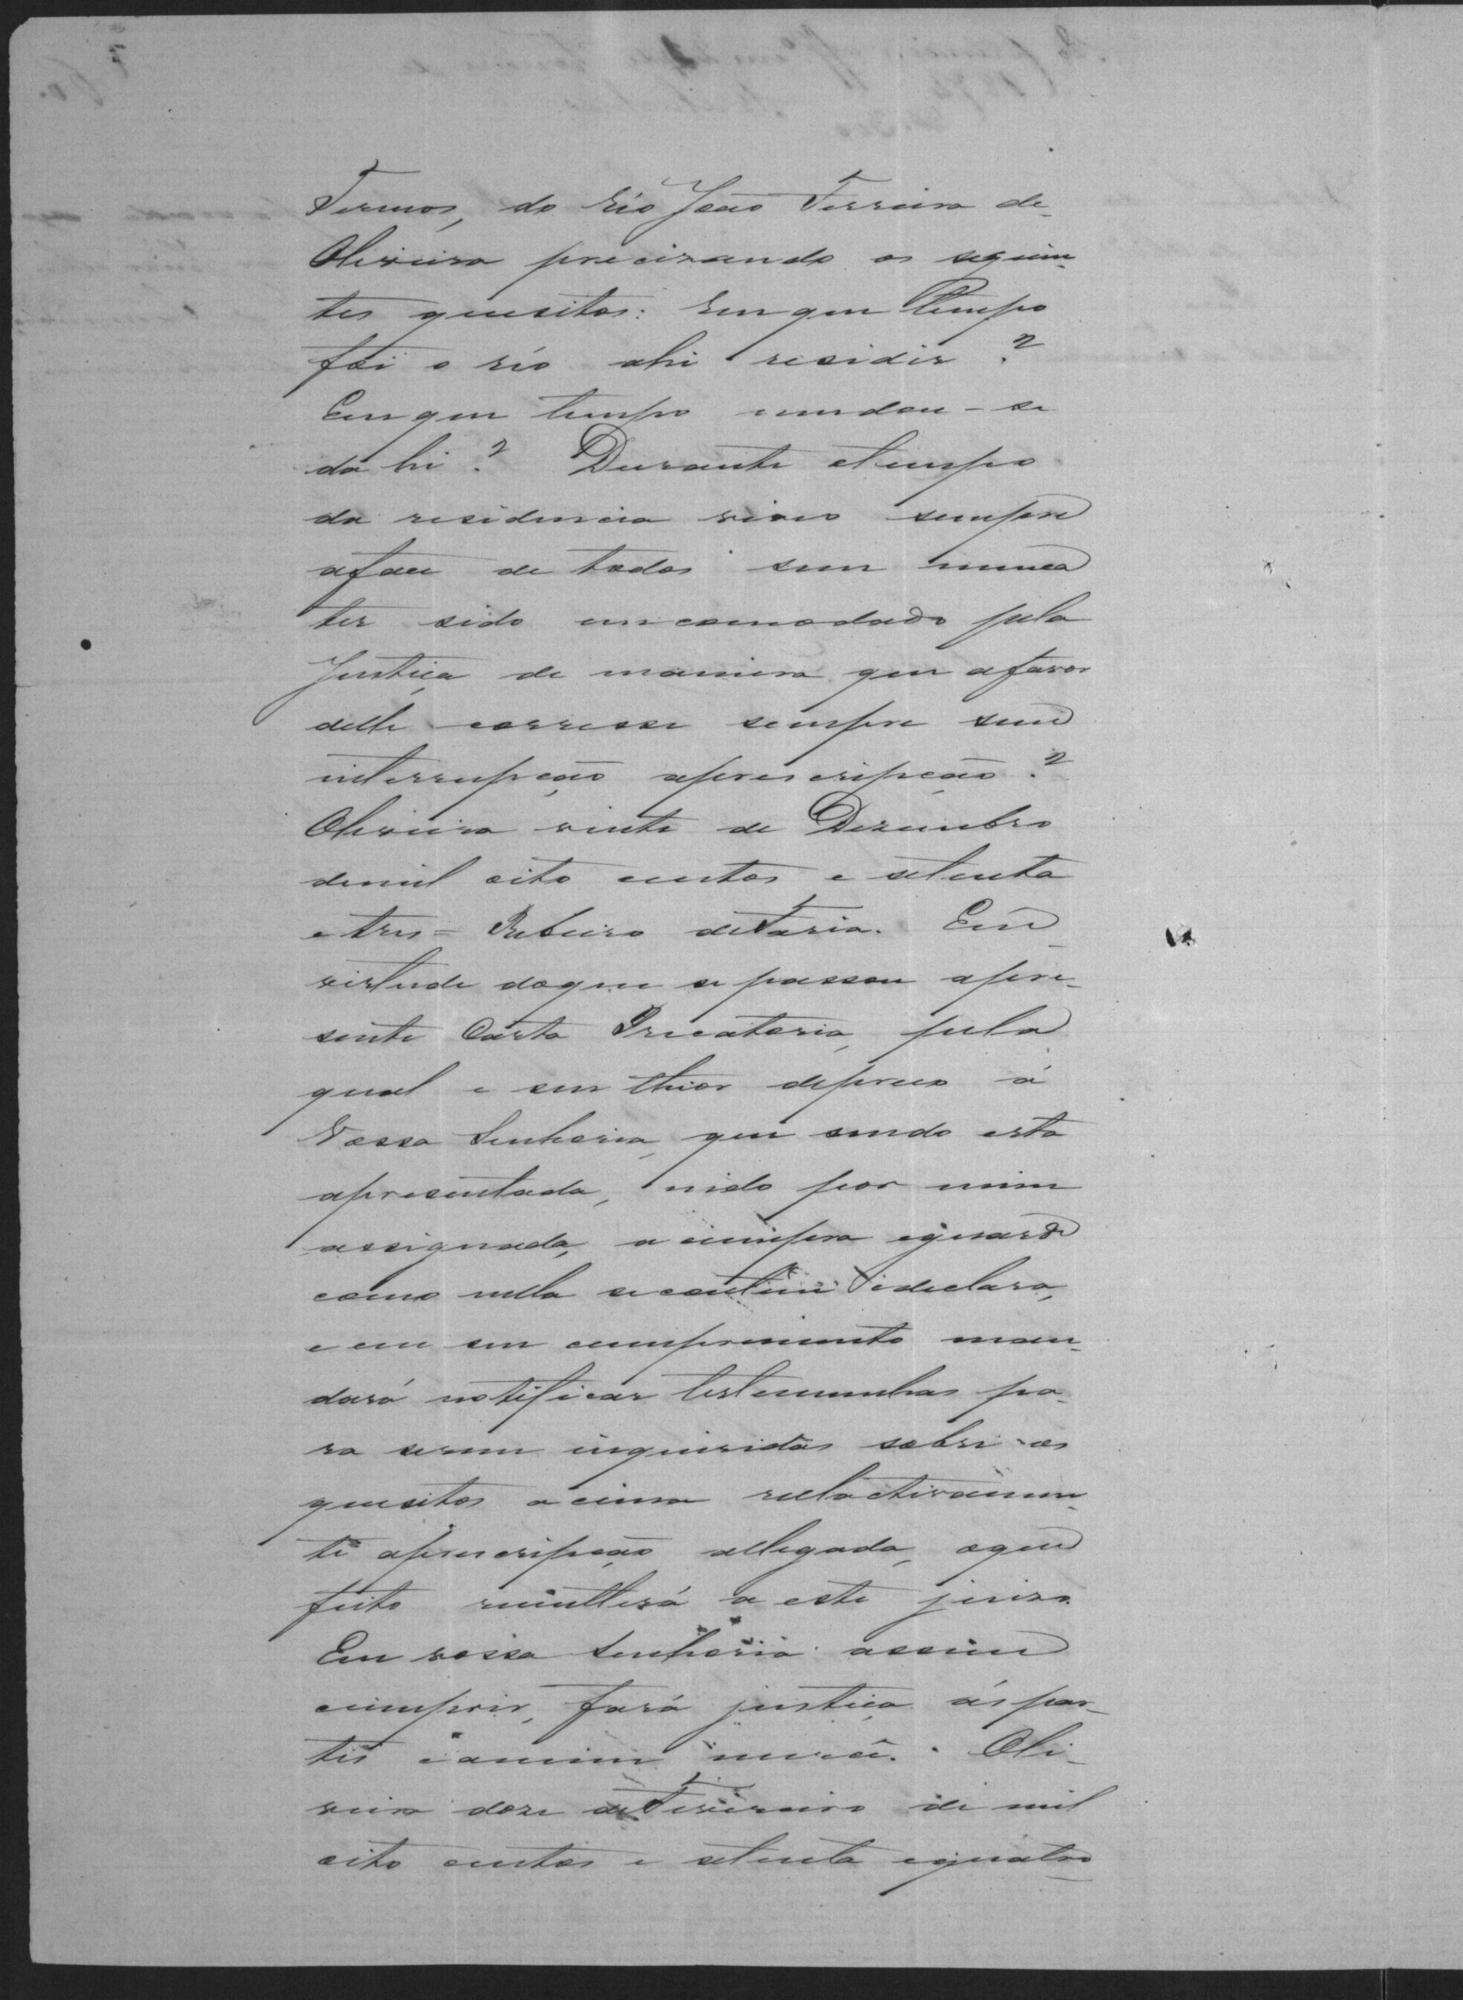 Termos, do réo João Ferreira de
Oliveira precizando os seguin-
tes quesitos: Em que tempo
foi o réo ahi residir?
Em que tempo mudou-se
da hi? Durante otempo
da residencia viveo sempre
aface de todos sem nunca
ter sido incomodado pela
Justiça, de maneira que afavor
delle corresse sempre sem
interrupção aprescripção?
Oliveira vinte de Dezembro
demil oito centos e setenta
e tres = Ribeiro deFaria. Em
virtude doque se passou apre-
sente Carta Precatoria, pela
qual e seu theor depreco á
Vossa Senhoria, que sendo esta
apresentada, indo por mim
assignada, a cumpra eguarde
como nella secontem edeclara,
e em seu cumprimento man-
dará notificar testemunhas pa-
ra serem inqueridas sobre os
quesitos a cima relactivamen-
te aprescripção allegada, oque
feito remetterá a este juizo.
Em vossa Senhoria assim
cumprir, fará justiça ás par-
tes eamim mercê. Oli-
veira doze deFevereiro de mil
oito centos e setenta equatro